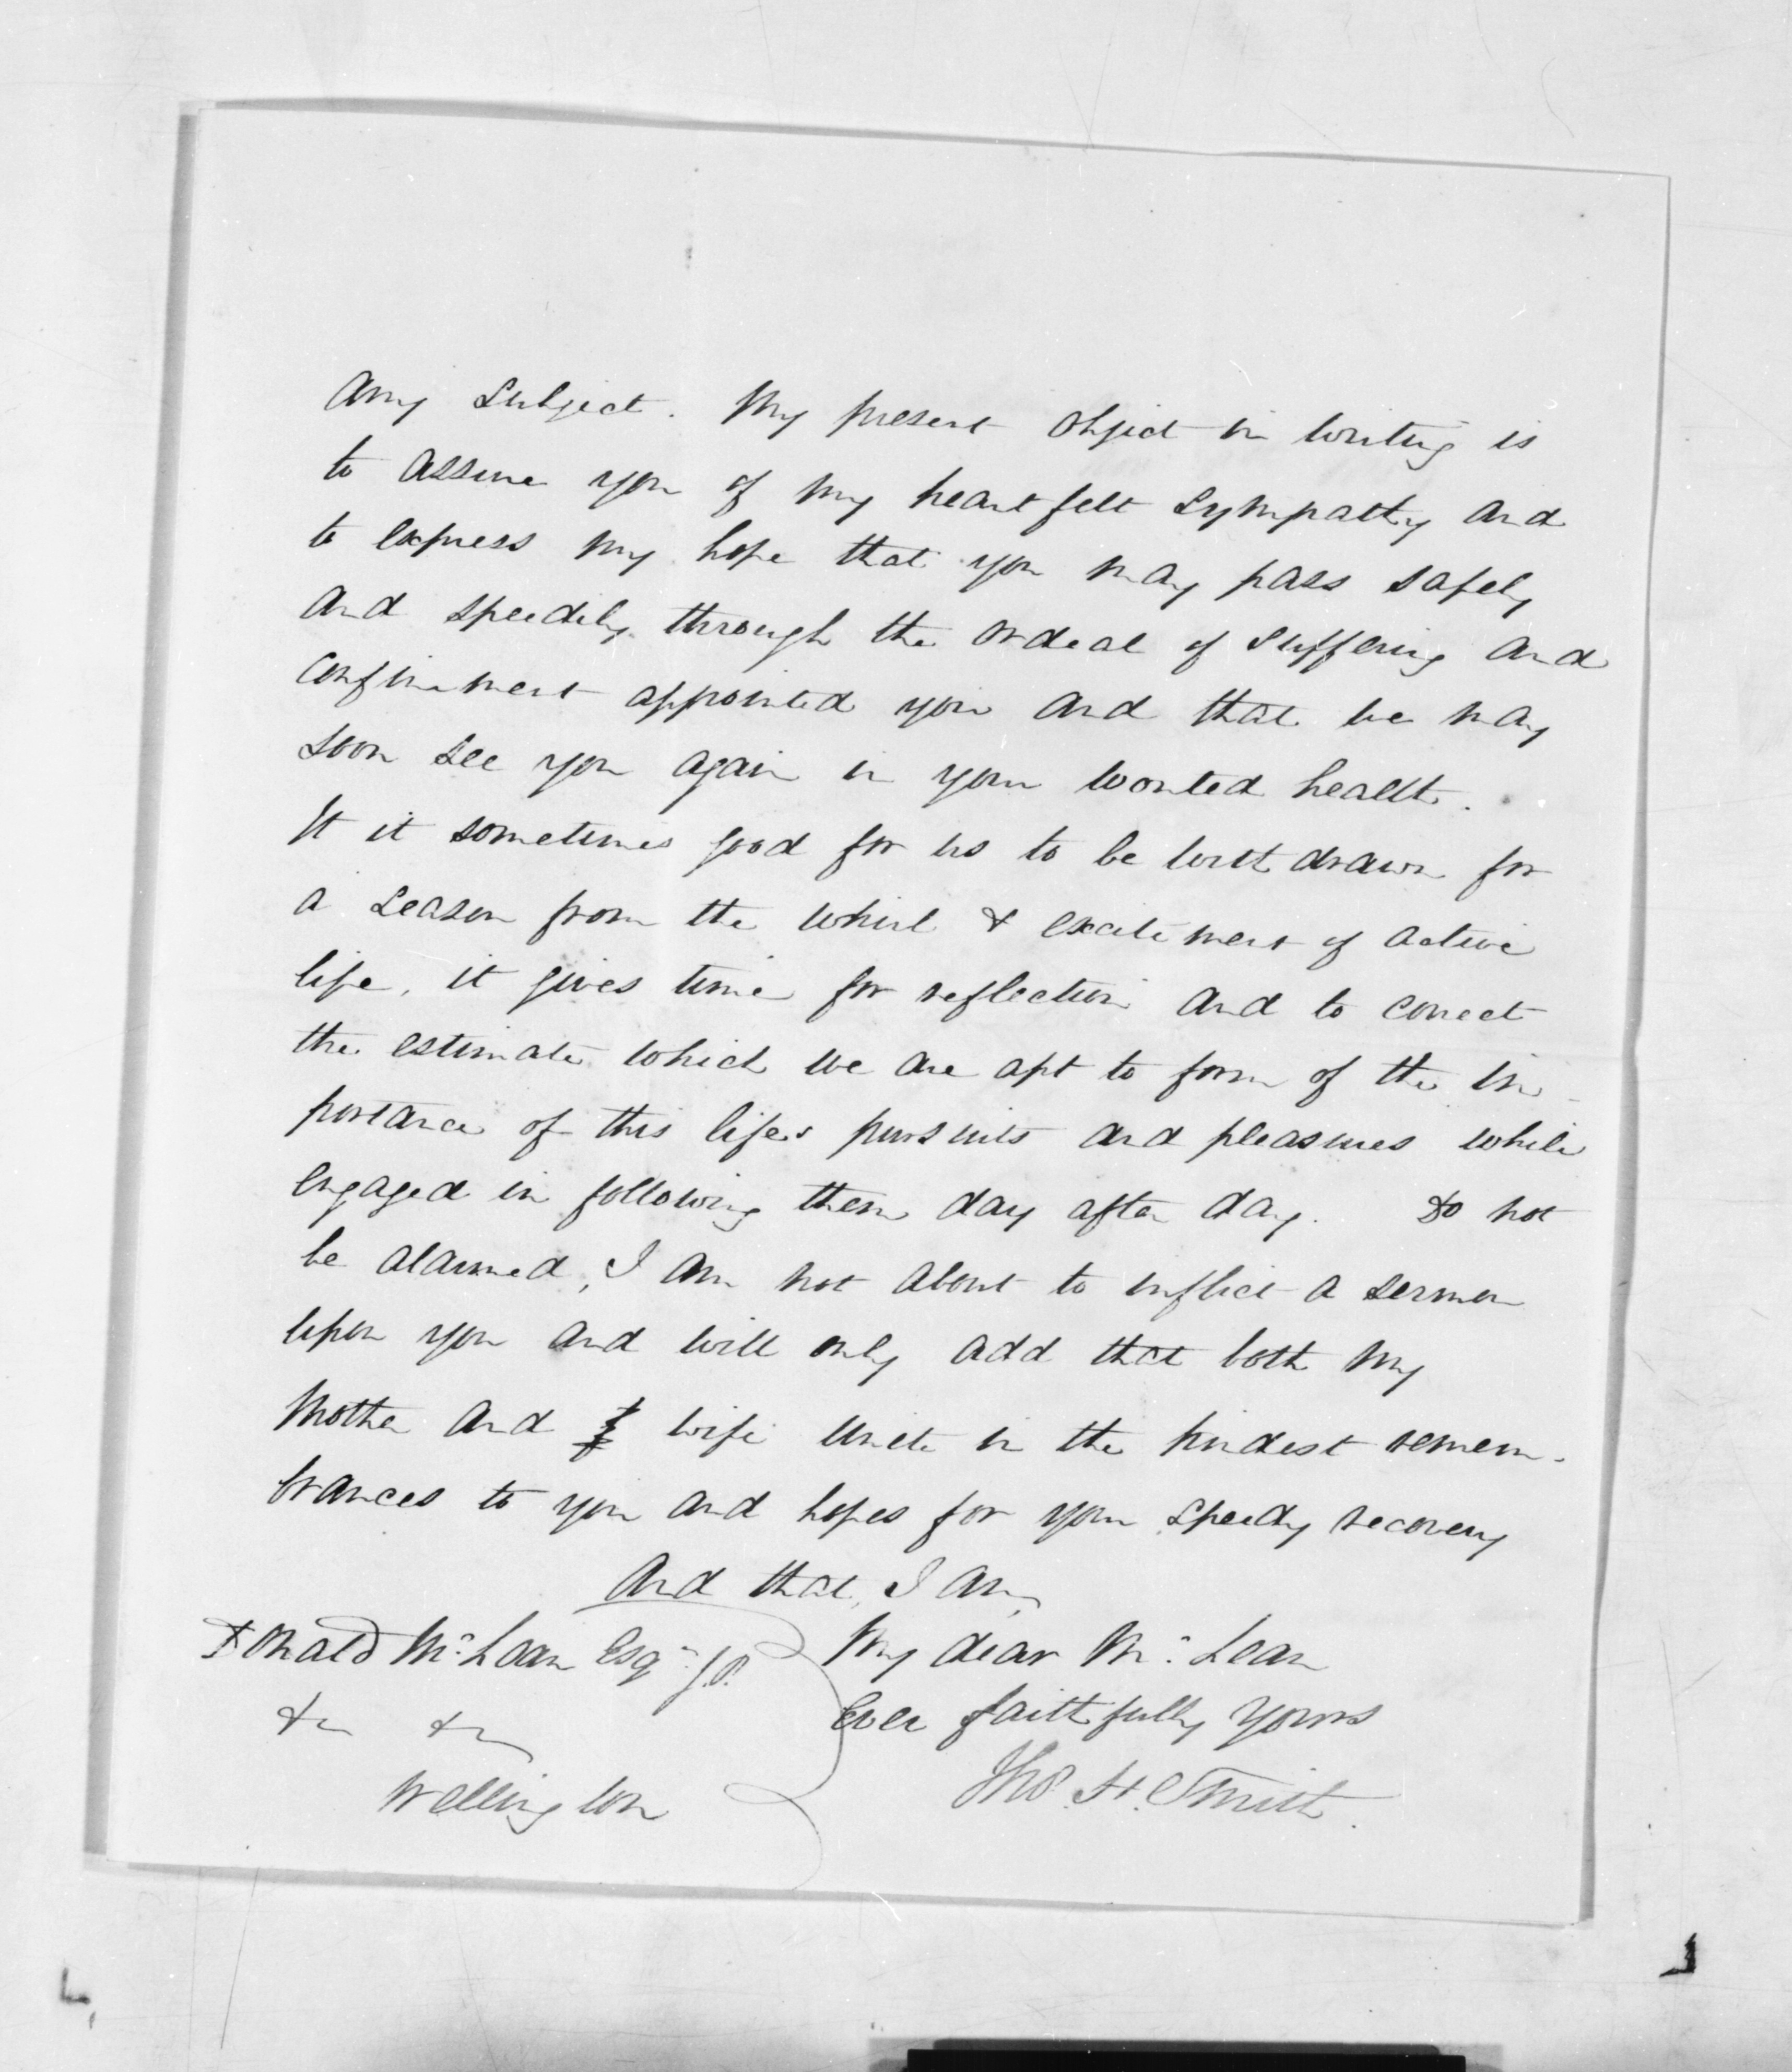 any subject. My present object in writing is
to assure you of my heartfelt sympathy and
to express my hope that you may pass safely
and speedily through the ordeal of suffering and
confinement appointed you and that we may
soon see you again in your wonted health.
It it sometimes good for us to be withdrawn for
a season from the whirl & excitement of active
life, it gives time for reflection and to correct
the estimate which we are apt to form of the im-
portance of this lifes pursuits and pleasures while
engaged in following them day after day. Do not
be alarmed, I am not about to inflict a sermon
upon you and will only add that both my
Mother and wife unite in the kindest remem-
brances to you and hopes for your speedy recovery
and that, I am,
My dear McLean
Ever faithfully yours
Thos. H. Smith.
Donald McLean Esqr. J.P.
&c &c
Wellington